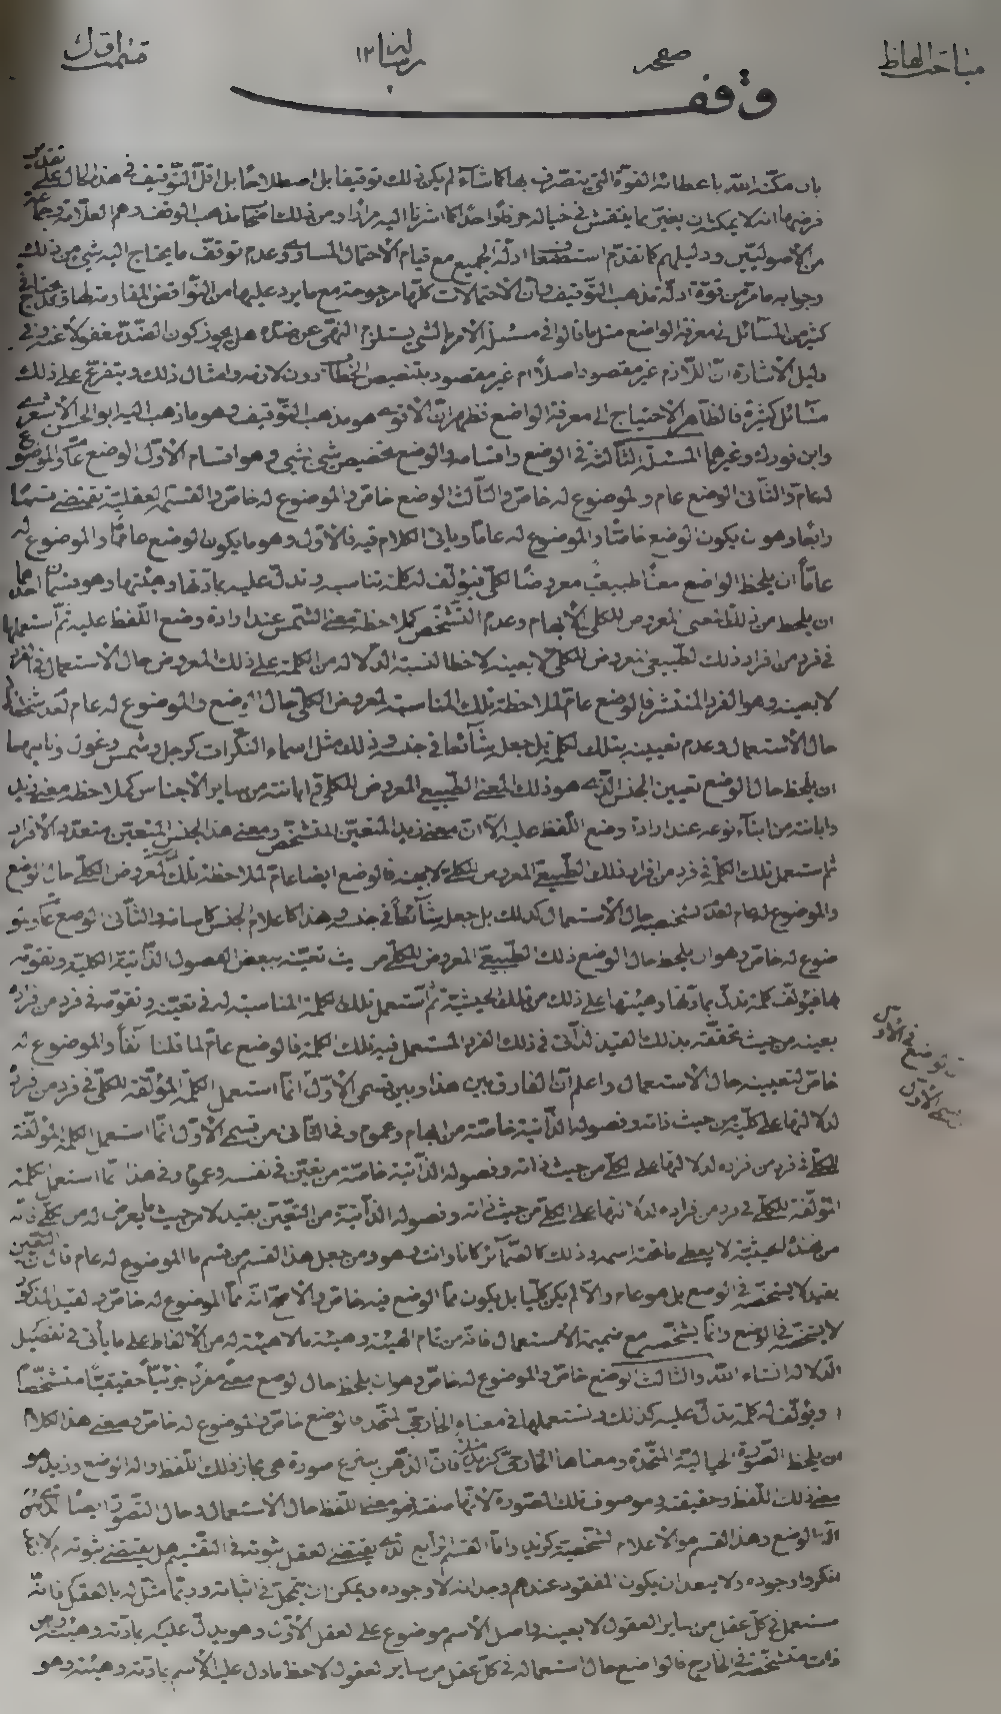 مباحث الفاظ صفحه رساله ١٢ قسمت اول
وقف
بان مكنه الله باعطائه القوة التي يتصرف بها كما شاء لم يكن ذلك توقيفا بل اصطلاحا بل اقل التوقيف في هذه الحال على تقدير
فرضهما انه لا يمكنه ان يغير بما ينتقش في خياله حرفا واحدا كما اشرنا اليه مرارا ومن ذلك مذهب الوقف وهم العلامة وجماعة
من الاصوليين ودليلهم كما تقدم استضعفا ادلة الجميع مع قيام الاحتمال المساوي وعدم توقف ما يحتاج اليه شيء من ذلك
وجوابه ما مر من قوة ادلة مذهب التوقيف وان الاحتمالات كلها مرجوحة مع ما يرد عليها من النواقض المقاومة لها
كثير من المسائل في معرفة الواضع مثل ما قالوا في مسئلة الامر بالشيء يستلزم النهي عن ضده هل يجوز كون الضد مغفولا عنه في
دليل الاشارة ان اللازم غير مقصود اصلا ام غير مقصود بتنصيص الخطاب دون لازمه وامثال ذلك ويتفرع على ذلك
مسائل كثيرة فالظاهر الاحتياج الى معرفة الواضع فظهر ان الاقوى هو مذهب التوقيف وهو ما ذهب اليه ابو الحسن الاشعري
وابن فورك وغيرهما المسئلة الثالثة في الوضع واقسامه والوضع تخصيص شيء بشيء وهو اقسام الاول الوضع عام والموضوع
له عام والثاني الوضع عام والموضوع له خاص والثالث الوضع خاص والموضوع له خاص والقسمة العقلية تقتضي قسما
رابعا وهو ان يكون الوضع خاصا والموضوع له عاما وياتي الكلام فيه فالاول وهو ما يكون الوضع عاما والموضوع له
عاما ان يلحظ الواضع معنا طبيعي معروضا لكلي فيؤلف له كلمة تناسبه وتدل عليه بمادتها وهيئتها وهو قسمان احدهما
ان يلحظ من ذلك المعنى المعروض للكلي الابهام وعدم التشخص كملاحظة معنى الشمس عند ارادة وضع اللفظ عليه ثم استعملها
في فرد من افراد ذلك الطبيعي المعروض للكلي لا بعينه لاحظا لنسبة الدلالة من الكلمة على ذلك المعروض حال الاستعمال في افراده
لا بعينه وهو الفرد المنتشر فالوضع عام لملاحظة تلك المناسبة لمعروض الكلي حال الوضع والموضوع له عام لعدم تشخصه
حال الاستعمال وعدم تعيينه بتلك الكلمة بل جعل شائعا في جنسه وذلك مثل اسماء النكرات كرجل وشمس وغول وثانيهما
ان يلحظ حال الوضع تعيين الجنس الذي هو ذلك المعنى الطبيعي المعروض للكلي وابانته من ساير الاجناس كملاحظة معنى زيد
وابانته من ابناء نوعه عند ارادة وضع اللفظ عليه الا ان معنى زيد المتعين المتشخص ومعنى هذا الجنس المتعين متعدد الافراد
ثم استعمل تلك الكلمة في فرد من افراد ذلك الطبيعي المعروض للكلي لا بعينه فالوضع ايضا عام لملاحظة تلك لمعروض الكلي حال الوضع
والموضوع له عام لعدم تشخصه حال الاستعمال كذلك بل جعل شائعا في جنسه وهذا كاعلام الجنس كاسامة والثاني الوضع عام والمو
ضوع له خاص وهو ان يلحظ حال الوضع ذلك الطبيعي المعروض للكلي من حيث تعينه ببعض الفصول الذاتية الكلية وتقومه
بها فيؤلف كلمة تدل بمادتها وهيئتها على ذلك من تلك الحيثية ثم استعمل تلك الكلمة المناسبة له في تعينه وتقومه في فرد من افراده
بعينه من حيث تحققه بذلك القيد الذاتي في ذلك الفرد المستعمل فيه تلك الكلمة فالوضع عام لما قلنا آنفا والموضوع له
خاص لتعيينه حال الاستعمال واعلم ان الفارق بين هذا وبين قسمي الاول انما استعمل الكلمة المؤلفة للكلي في فرد من افراده
لدلالتها على كليه من حيث ذاته وفصوله الذاتية خاصة من ابهام وعموم وفي الثاني من قسمي الاول انما استعمل الكلمة المؤلفة
للكلي في فرد من افراده لدلالتها على الكلي من حيث ذاته وفصوله الذاتية خاصة من تعين في نفسه وعموم وفي هذا انما استعمل الكلمة
المؤلفة للكلي في فرد من افراده لدلالتها على الكلي من حيث ذاته وفصوله الذاتية من التعين بقيد لا من حيث ما يعرض له من كلي فانه
من هذه الحيثية لا يعطي ما تحته اسمه وذلك كالضمائر كانا وانت وهو ومن جعل هذا القسم من قسم ما الموضوع له عام قال ان التعين
بقيد لا يشخصه في الوضع بل هو عام والا لم يكن كليا بل يكون مما الوضع فيه خاص والاصح انه مما الموضوع له خاص والقيد المذكور
لا يشخصه في الوضع وانما يشخصه مع ضميمة الاستعمال فانه من تمام الهيئة وهيئة ما لا هيئة له من الالفاظ على ما ياتي في تفصيل
الدلالة انشاء الله والثالث الوضع خاص والموضوع له خاص وهو ان يلحظ حال الوضع معنى مفردا جزئيا حقيقيا متشخصا
ويؤلف له كلمة تدل عليه كذلك ويستعملها في معناه الخارجي المتحد فالوضع خاص والموضوع له خاص ومعنى هذا الكلام
ان يلحظ الصورة الخيالية المتحدة ومعناها الخارجي كزيد مثلا فان الذهن ينتزع صورة هي مجاز ذلك اللفظ والة الوضع وزيد هو
معنى ذلك اللفظ وحقيقته وموصوف تلك الصورة لانها صفته فهو معنى اللفظ حال الاستعمال وحال التصور ايضا
آلة الوضع وهذا القسم هو الاعلام الشخصية كزيد واما القسم الرابع الذي يقتضي العقل ثبوته في التقسيم هل يقتضي ثبوته ام لا
انكروا وجوده ولا يبعد ان يكون المفقود عندهم وجدانه لا وجوده ويمكن ان يتمحل في اثباته وربما مثل له بالعقل فانه
مستعمل في كل عقل من ساير العقول لا بعينه واصل الاسم موضوع على العقل الاول وهو يدل عليه بمادته وهيئته وهو
ذات متشخصة في الخارج فالواضع حال استعماله في كل عقل من ساير العقول لاحظ ما دل عليه الاسم بمادته وهيئته وهو